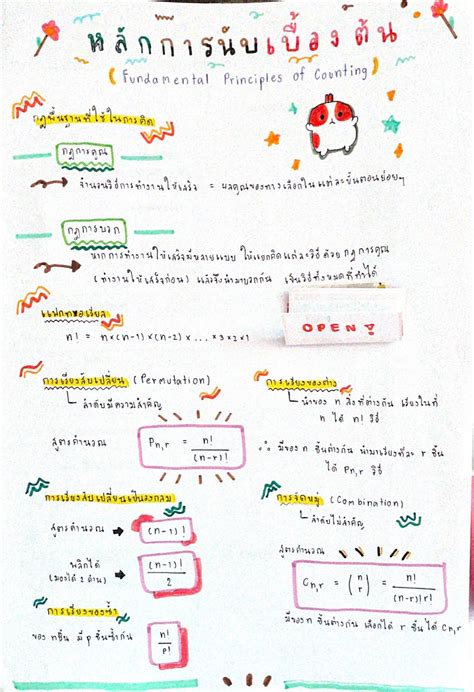 หลักการนับเบื้องต้น
(Fundamental Principles of Counting)
กฎพื้นฐานที่ใช้ในการคิด
กฎการคูณ
จำนวนวิธีการทำงานให้เสร็จ = ผลคูณของทางเลือกในแต่ละขั้นตอนย่อยๆ
กฎการบวก
หากการทำงานให้เสร็จมีหลายแบบ ให้แยกคิดแต่ละวิธี ด้วย กฎการคูณ
(ทำงานให้เสร็จก่อน) แล้วจึงนำมาบวกกัน เป็นวิธีทั้งหมดที่ทำได้
แฟกทอเรียล
n! = n×(n-1)×(n-2)× ... ×3×2×1
OPEN
การเรียงสับเปลี่ยน (Permutation)
ลำดับมีความสำคัญ
สูตรคำนวณ P n,r = n! / (n-r)!
การเรียงของต่าง
นำของ n สิ่งที่ต่างกัน เรียงในที่
n ได้ n! วิธี
∴ มีของ n ชิ้นต่างกัน นำมาเรียงทีละ r ชิ้น
ได้ Pn,r วิธี
การเรียงสับเปลี่ยนเป็นวงกลม
สูตรคำนวณ → (n-1)!
พลิกได้ → (n-1)! / 2
(มองได้ 2 ด้าน)
การเรียงของซ้ำ
ของ nชิ้น มี p ชิ้นซ้ำกัน n! / p!
การจัดหมู่ (Combination)
ลำดับไม่สำคัญ
สูตรคำนวณ
C n,r = (n r) = n! / (n-r)!r!
มีของ n ชิ้นต่างกัน เลือกได้ r ชิ้น ได้ Cn,r